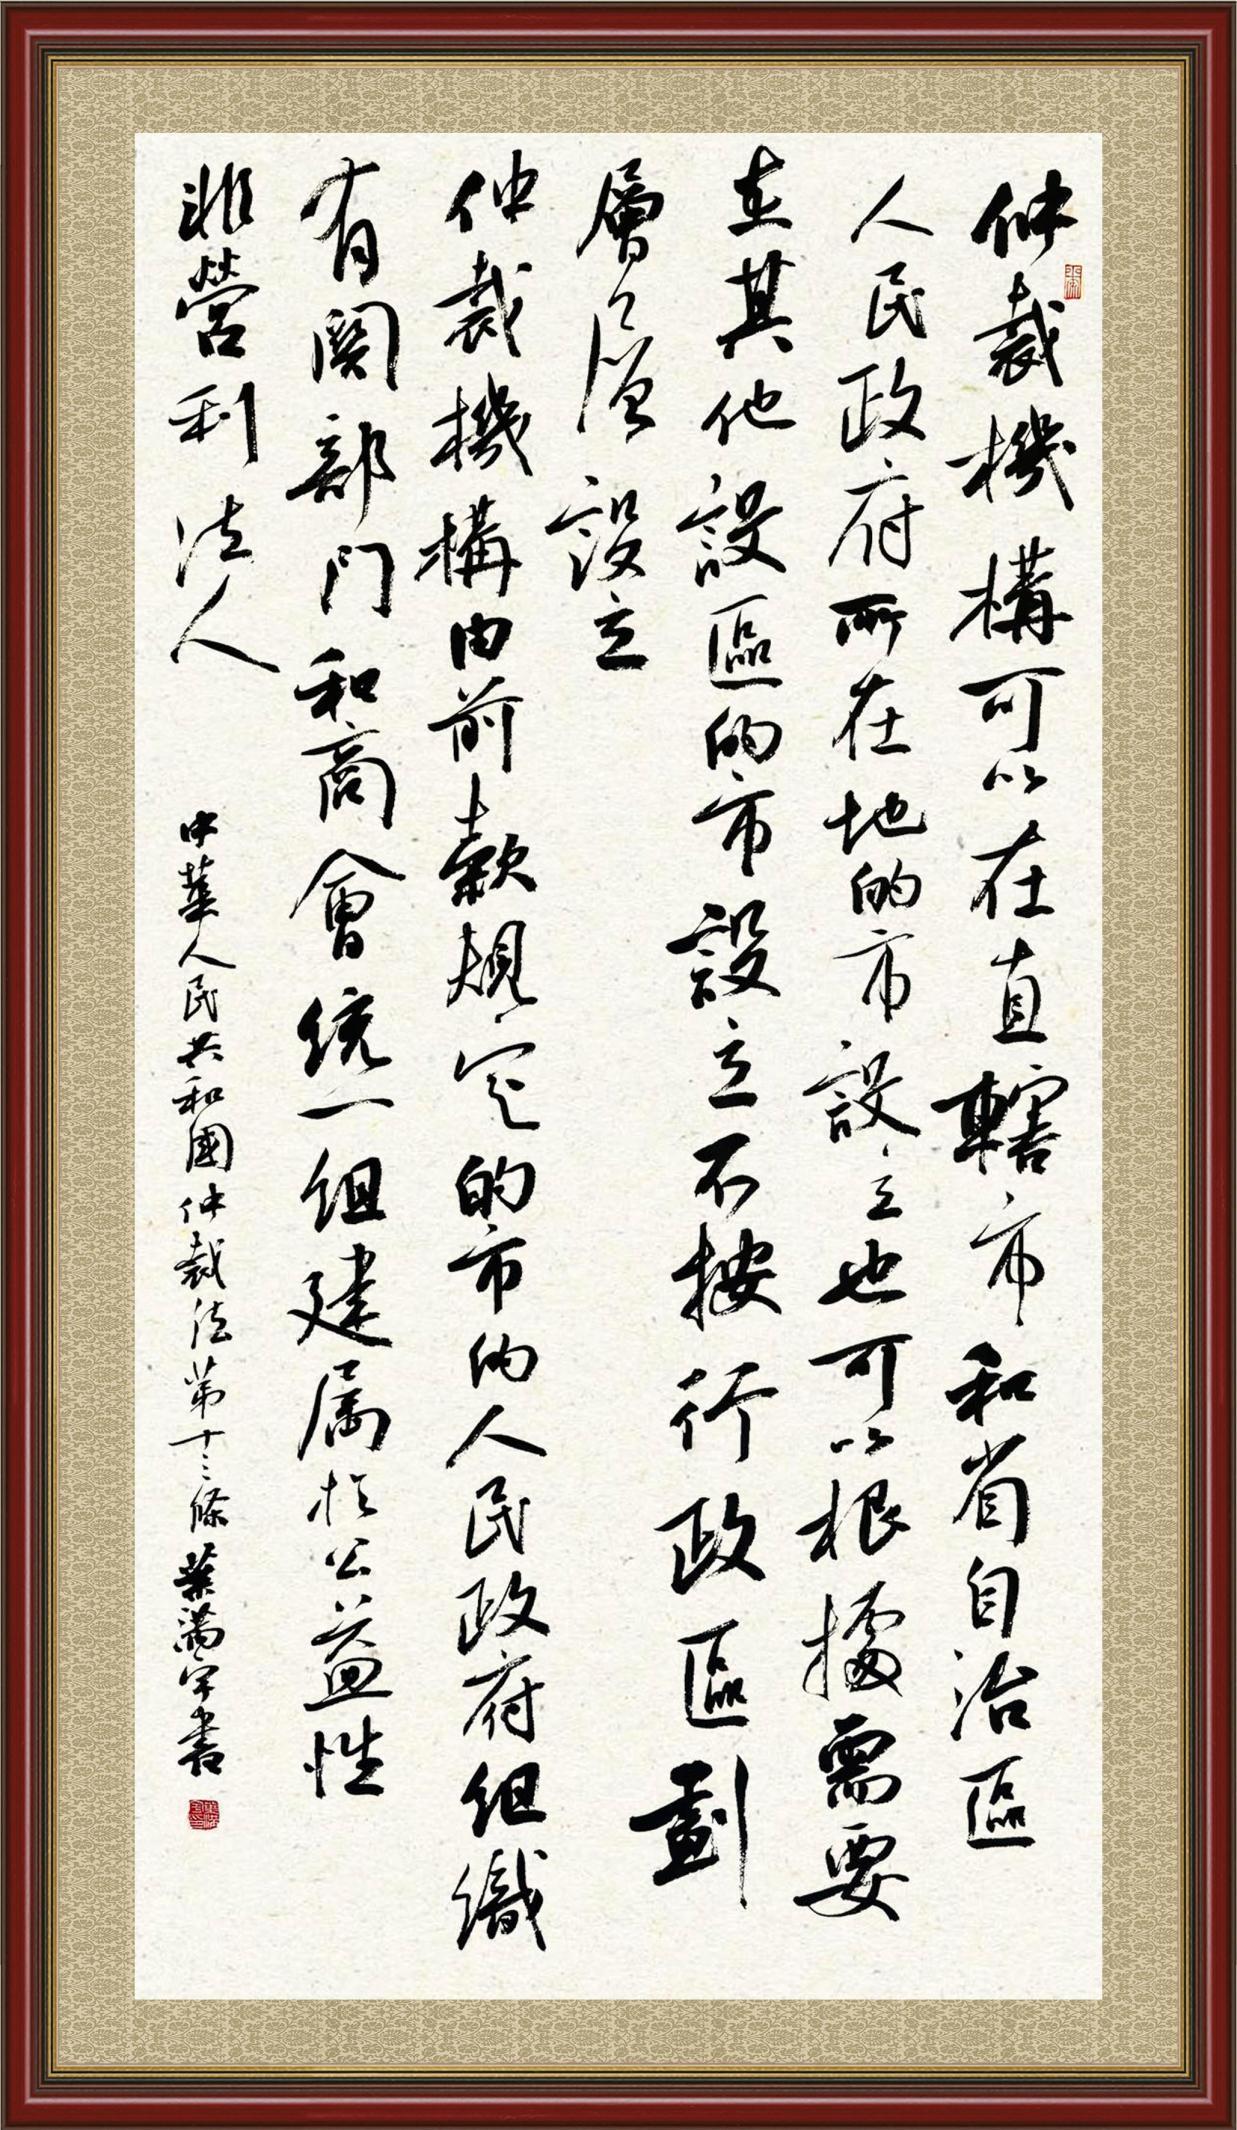 仲裁機構可以在直轄市和省自治區
人民政府所在地的市設立也可以根據需要
在其他設區的市設立不按行政區劃
層層設立
仲裁機構由前款規定的市的人民政府組織
有関部门和商會統一組建属於公益性
非營利法人
中華人民共和國仲裁法第十三條 葉滿宇書